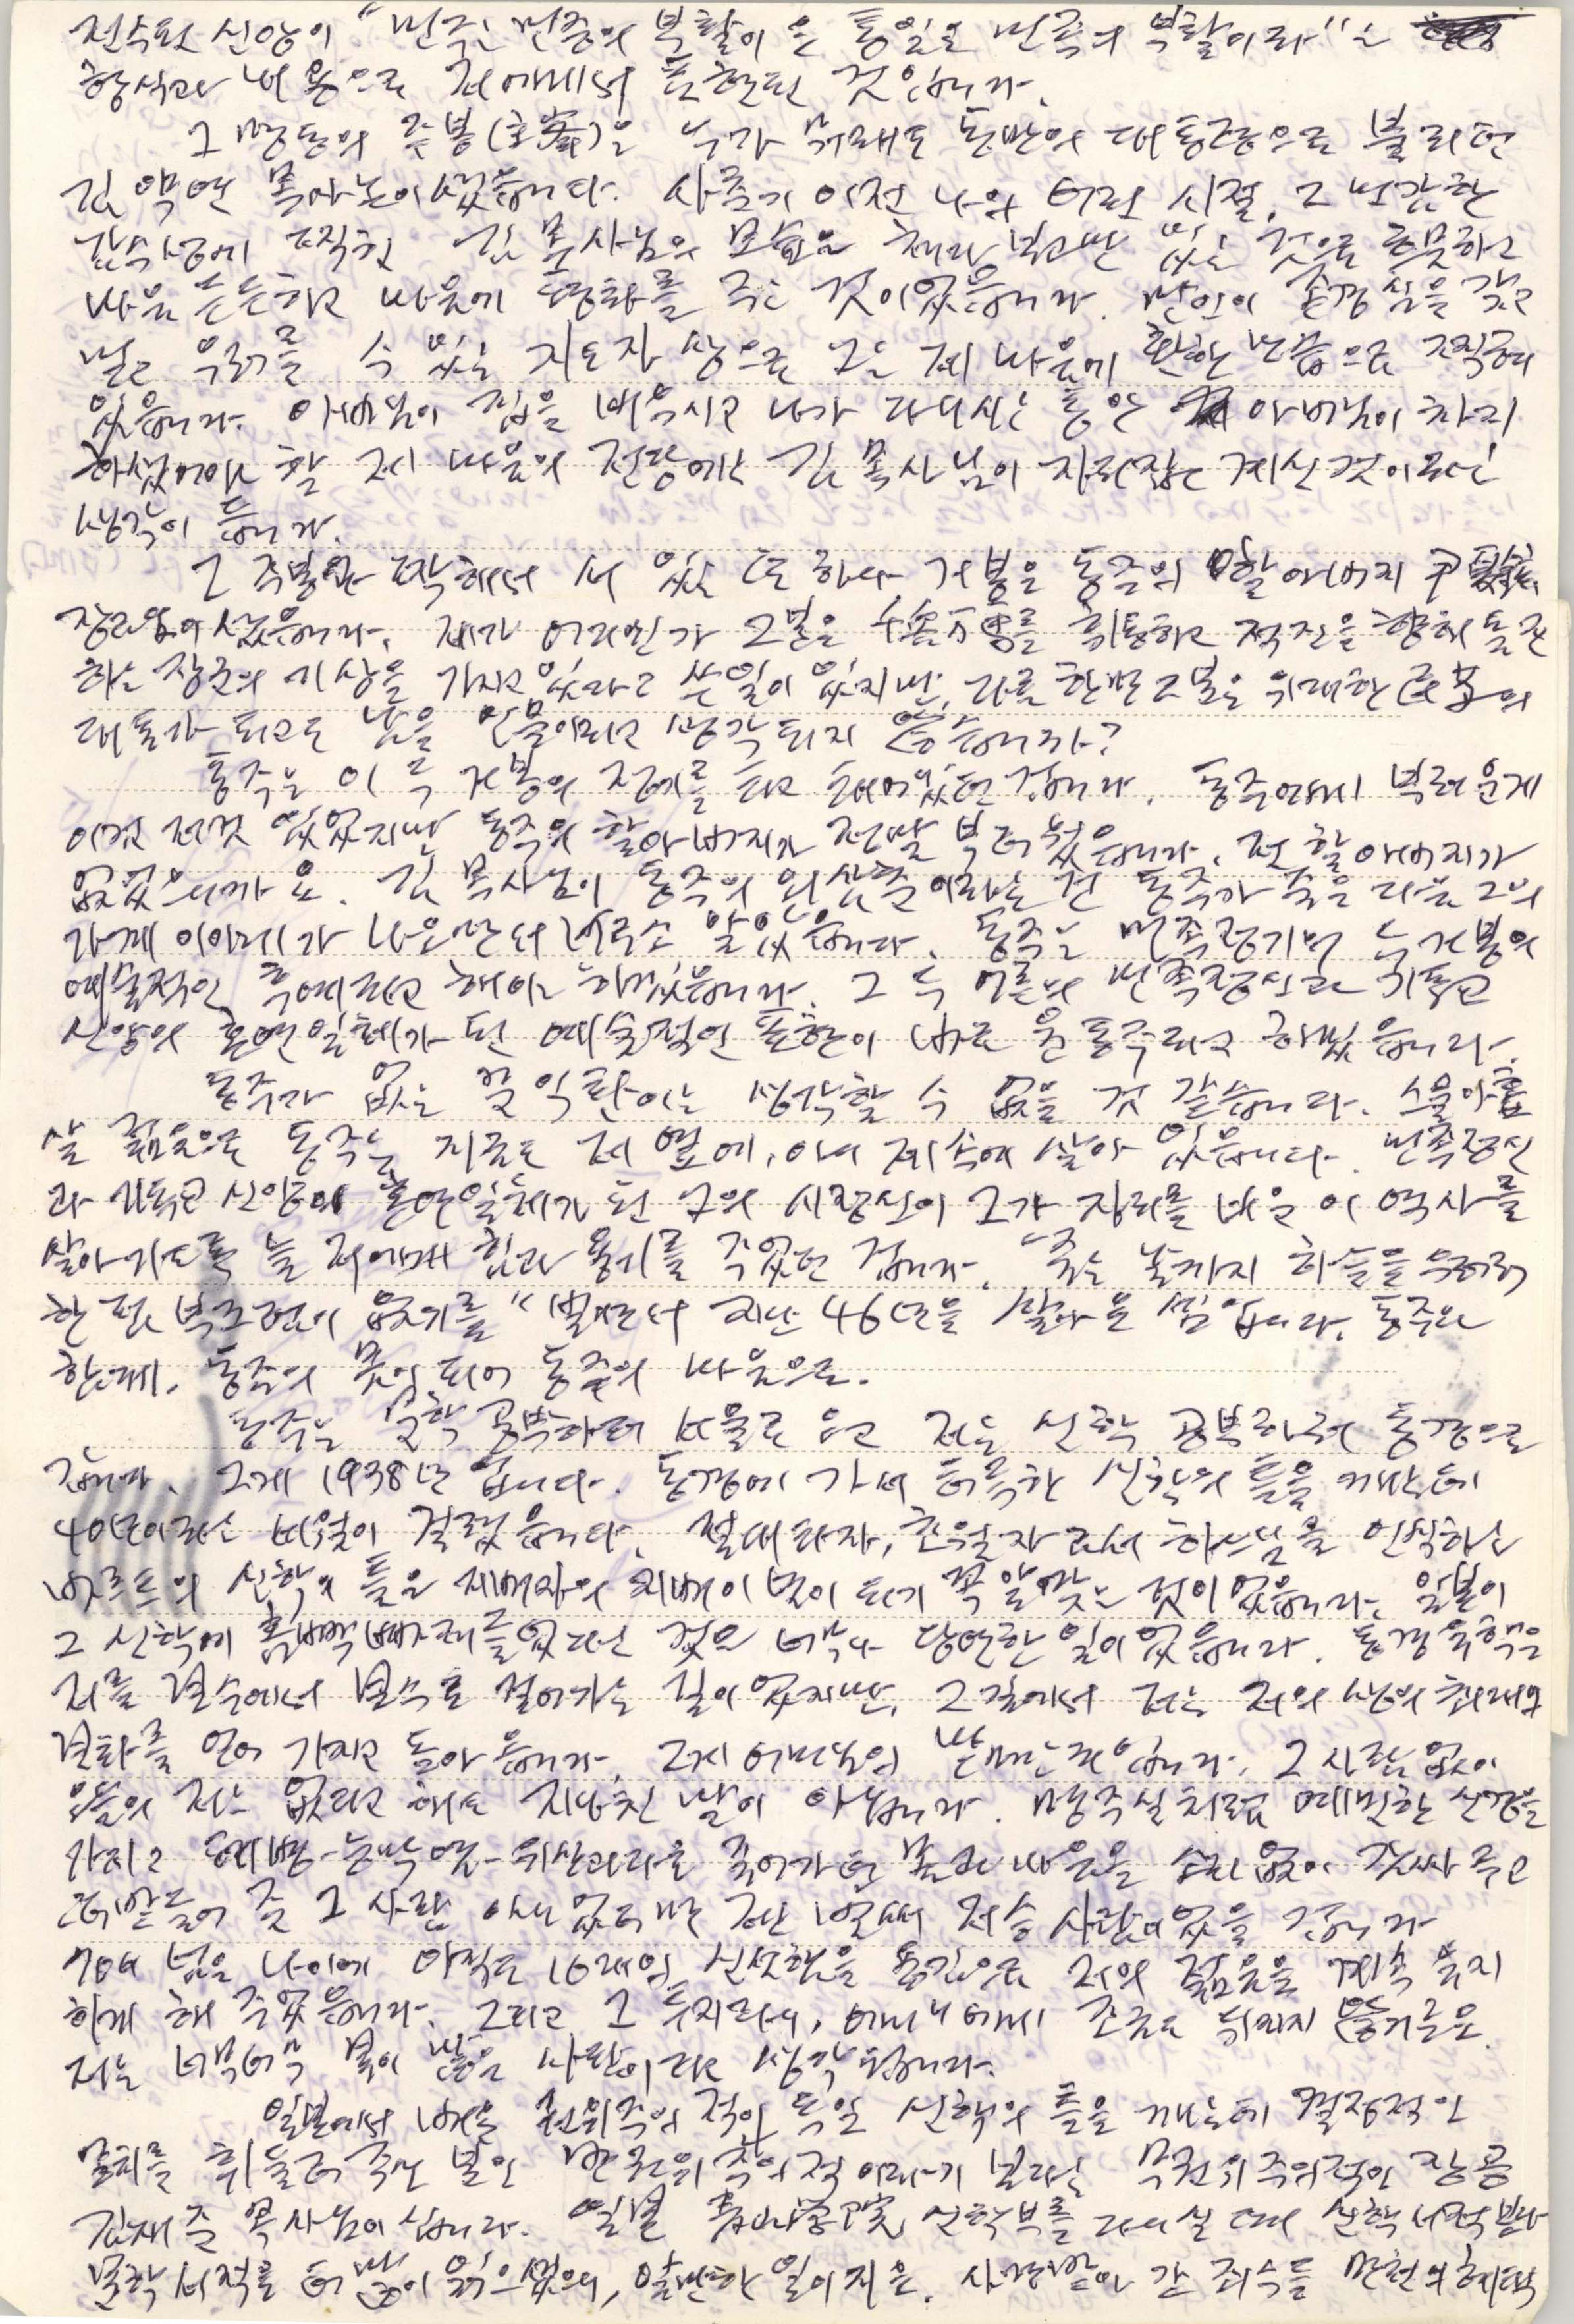 전수된 신앙이 "민주는 민중의 부활이요 통일은 민족의 부활이라"는
형식과 내용으로 저에게서 표현된 것입니다.
그 명동의 주봉(主峯)은 누가 뭐래도 동만의 대통령으로 불리던
김약연 목사님이셨습니다. 사춘기 이전 나의 어린 시절, 그 민감한
감수성에 조직된 김 목사님의 모습은 쳐다보고만 있는 것으로 흐뭇하고
마음 든든하고 마음에 평화를 주는 것이었습니다. 만인이 존경심을 갖고
널리 우러를 수 있는 지도자상으로 그는 제 마음에 환한 모습으로 조직되어
있습니다. 아버님이 집을 비우시고 나가 다니시는 동안 아버님이 차지
하셨어야 할 제 마음의 전당에는 김 목사님이 자리잡고 계신 것이라는
생각이 듭니다.
그 주봉과 짝해서 서 있는 또 하나 거봉은 동주의 할아버지
장로님이셨습니다. 제가 어디선가 그분을 휘동하고 적진을 향해 돌진
하는 장군의 기상을 가지고 있다고 쓴 일이 있지만, 다른 한편 그분은 위대한 民衆의
대표가 되고도 남을 인물이라고 생각되지 않습니까?
동주는 이 두 거봉의 정기를 타고 태어났던 겁니다. 동주에게서 부러운 게
이것 저것 있었지만 동주의 할아버지가 정말 부러웠습니다. 전 할아버지가
없었으니까요. 김 목사님이 동주의 외삼촌이라는 건 동주가 죽은 다음 그의
가계 이야기가 나오면서 비로소 알았습니다. 동주는 민족정기의 두 거봉의
예술적인 후예라고 해야 하겠습니다. 그 두 어른의 민족정신과 기독교
신앙의 혼연일체가 된 예술적인 표현이 바로 윤동주라고 하겠습니다.
동주가 없는 문익환이는 생각할 수 없을 것 같습니다. 스물아홉
살 젊음으로 동주는 지금도 제 옆에, 아니 제 속에 살아 있습니다. 민족정신
과 기독교 신앙이 혼연일체가 된 그의 시정신이 그가 자리를 비운 이 역사를
살아가도록 늘 저에게 힘과 용기를 주었던 겁니다. "죽는 날까지 하늘을 우러러
한 점 부끄럼이 없기를" 빌면서 지난 46년을 살아온 셈입니다. 동주와
함께, 동주의 몫이 되어 동주의 마음으로.
동주는 문학 공부하러 서울로 오고 저는 신학 공부하러 동경으로
갑니다. 그게 1938년입니다. 동경에 가서 터득한 신학의 틀을 깨는데
40년이라는 세월이 걸렸습니다. 절대타자, 초월자로서 하느님을 인식하는
바르트의 신학의 틀은 지배자의 지배이념이 되기 꼭 알맞는 것이었습니다. 일본이
그 신학에 흠뻑 빠져들었다는 것은 너무나 당연한 일이었습니다. 동경 유학은
저를 연수에서 연수로 끌어가는 길이었지만, 그 길에서 저는 저의 생의 최대의
변화를 얻어 가지고 돌아옵니다. 그게 어머님의 맏며느리입니다. 그 사람 없이
오늘의 저는 없다고 해도 지나친 말이 아닙니다. 명주실처럼 예민한 신경을
가지고 폐병-늑막염-위산과다를 짊어가던 몸과 마음을 소리없이 감싸 주고
떠받들어 준 그 사람 아니었더면 전 벌써 저승 사람이었을 겁니다
70이 넘은 나이에 아직도 10대의 신선함을 풍김으로 저의 젊음을 계속 유지
하게 해 주었습니다. 그리고 그 두 자리, 어머니에게 조금도 뒤지지 않거든요.
저는 너무너무 복이 많은 사람이라고 생각됩니다.
일본에서 배운 권위주의적인 독일 신학의 틀을 깨는데 결정적인
망치를 휘둘러 주신 분은 반권위주의적이라기 보다는 무권위주의적인 장공
김재준 목사님이십니다. 일본 靑山學院 신학부를 다니실 때 신학 서적보다
문학 서적을 더 많이 읽으셨으니, 알만한 일이지요. 사람 많아 간 죄수들